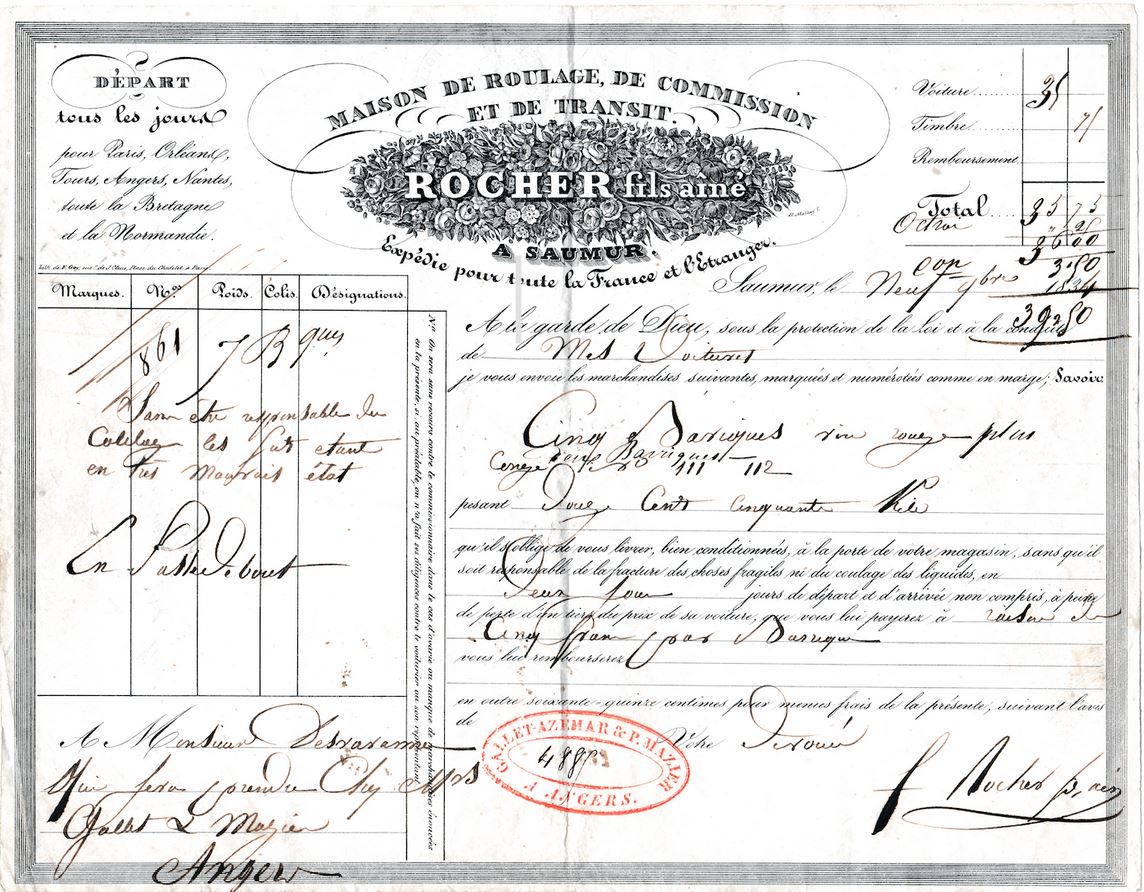 DÉPART
tous les jours
pour Paris, Orléans,
Tours, Angers, Nantes,
toute la Bretagne
et la Normandie.
MAISON DE ROULAGE, DE COMMISSION
ET DE TRANSIT.
ROCHER fils aîné
A SAUMUR.
Expédie pour toute la France et l'Etranger.
Voiture 35
Timbre 75
Remboursement
Total 35 75
36 00
3 50
39 50
Saumur, le Neuf 9bre 1834
Marques. Nos Poids. Colis. Désignations.
861 7 Bques
Sans être responsable du
Coulage les fûts étant
en très mauvais état
En Passe Debout
Nota. On non sans recours contre le commissionnaire dans le cas d'avarie ou manque de marchandises énoncées
en la présente, si, au préalable, on n'a fait en diligence contre le voiturier ou son représentant.
A la garde de Dieu, sous la protection de la Loi et à la conduite
de Mes Voitures
je vous envoie les marchandises suivantes, marquées et numérotées comme en marge; Savoir:
Cinq Bariques vin rouge plus
deux Barriques 111 112
pesant Douze Cent Cinquante Kilo
qu'il s'oblige de vous livrer, bien conditionnées, à la porte de votre magasin, sans qu'il
soit responsable de la fracture des choses fragiles ni du coulage des liquides, en
Deux jour jours de départ et d'arrivée non compris, à peine
de perte d'un tiers du prix de sa voiture, que vous lui payerez à raison de
Cinq franc par Barrique
vous lui rembourserez
en outre soixante-quinze centimes pour menus frais de la présente, suivant l'avis
de Votre Dévoué
GALLET-AZEMAR & P. MAZIER
A ANGERS.
A Monsieur
Qui fera prendre Chez Mrs
Gallet & Mazier
Angers
Rocher fils aîné